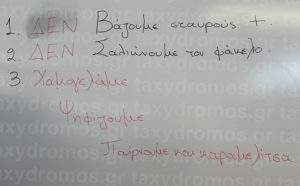 1. ΔΕΝ Βάζουμε σταυρούς +.
2. ΔΕΝ Σαλιώνουμε τον φάκελο.
3. Χαμογελάμε
Ψηφίζουμε
Παίρνουμε και καραμελίτσα
taxydromos.gr